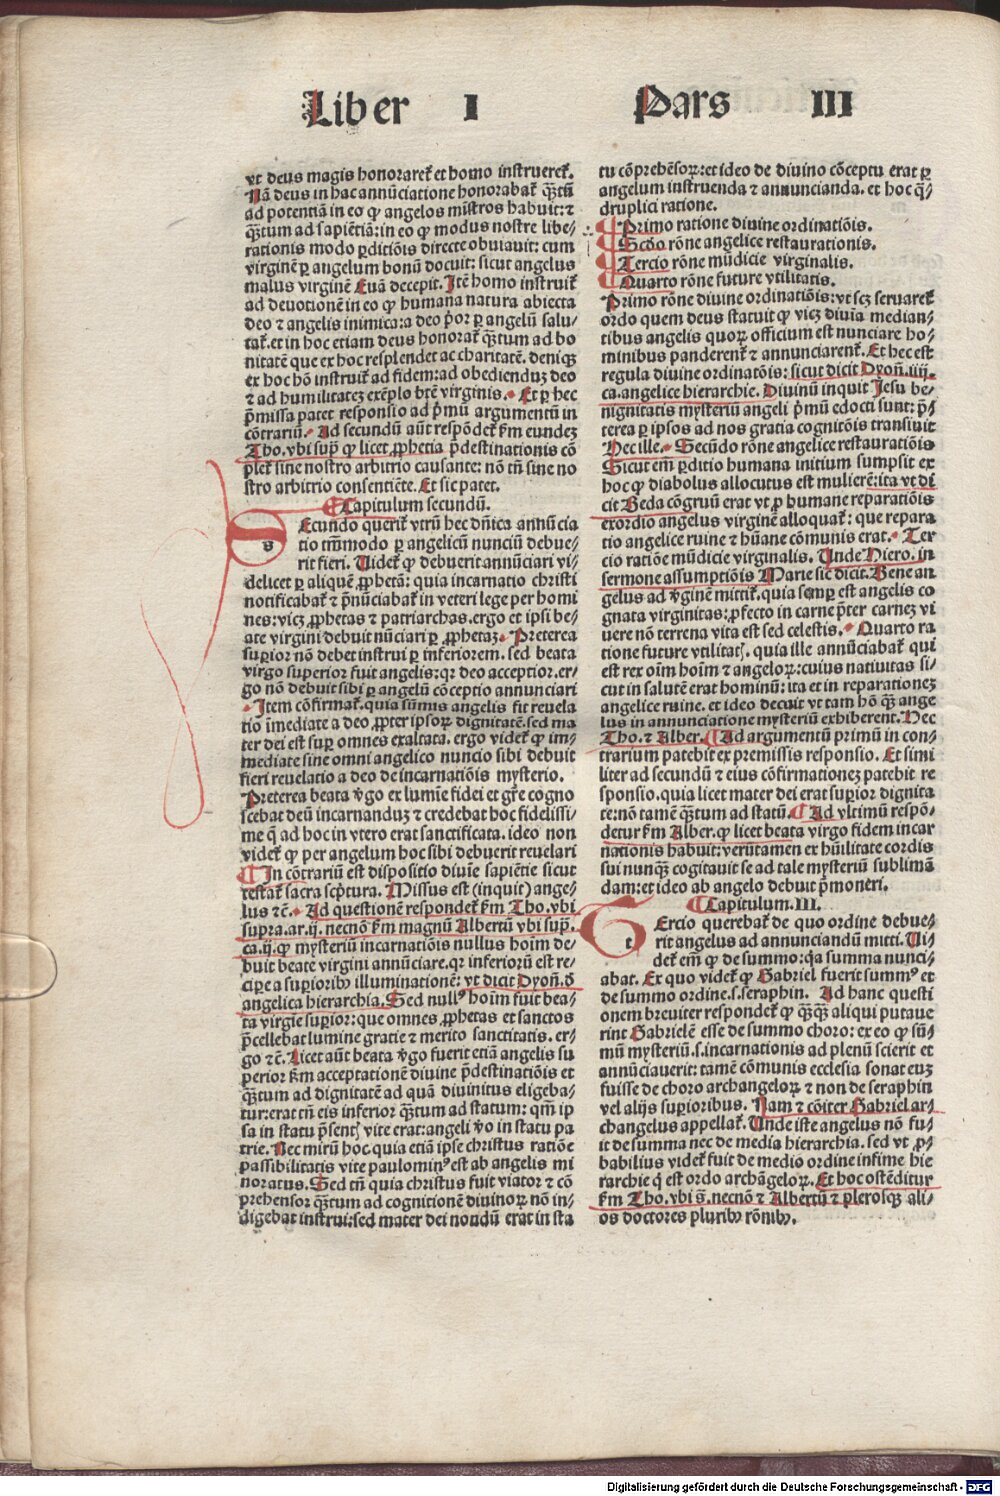 Liber I Pars III
vt deus magis honoraret᷑ et homo instrueret᷑.
Nā deus in hac annūciatione honorabat᷑ ꝙ̄tū
ad potentiā in eo ꝙ angelos mīstros habuit: ⁊
ꝙ̄tum ad sapiētiā: in eo ꝙ modus nostre libe-
rationis modo ꝑditiōis directe obuiauit: cum
virginē ꝑ angelum bonū docuit: sicut angelus
malus virginē Euā decepit. Itē homo instruit᷑
ad deuotionē in eo ꝙ humana natura abiecta
deo ⁊ angelis inimica: a deo p̄or ꝑ angelū salu-
tat᷑. et in hoc etiam deus honorat᷑ ꝙ̄tum ad bo
nitatē que ex hoc resplendet ac charitatē. deniqꝫ
ex hoc hō instruit᷑ ad fidem: ad obedienduꝫ deo
⁊ ad humilitateꝫ exēplo btē virginis. Et ꝑ hec
p̄missa patet responsio ad p̄mū argumentū in
cōtrariū. Ad secundū aūt respōdet᷑ ẜm eundeꝫ
Tho. vbi supͣ ꝙ licet ꝓphetia p̄destinationis cō
plet᷑ sine nostro arbitrio causante: nō tn̄ sine no
stro arbitrio consentiēte. Et sic patet.
Capitulum secundū.
s Ecundo querit᷑ vtrū hec dn̄ica annūcia
tio tm̄modo ꝑ angelicū nunciū debue-
rit fieri. Videt᷑ ꝙ debuerit annūciari vi-
delicet ꝑ aliquē ꝓphetā: quia incarnatio christi
notificabat᷑ ⁊ p̄nūciabat᷑ in veteri lege per homi
nes: vicꝫ ꝓphetas ⁊ patriarchas. ergo et ipsi be-
ate virgini debuit nūciari ꝑ ꝓphetaꝫ. Preterea
suꝑior nō debet instrui ꝑ inferiorem. sed beata
virgo superior fuit angelis: qꝛ deo acceptior. er-
go nō debuit sibi ꝑ angelū cōceptio annunciari
Item cōfirmat᷑. quia sūmis angelis fit reuela
tio īmediate a deo ꝓpter ipsoꝝ dignitatē. sed ma
ter dei est suꝑ omnes exaltata. ergo videt᷑ ꝙ im-
mediate sine omni angelico nuncio sibi debuit
fieri reuelatio a deo de incarnatiōis mysterio.
Preterea beata v̄go ex lumīe fidei et gr̄e cogno
scebat deū incarnanduꝫ ⁊ credebat hoc fidelissi-
me q̄ ad hoc in vtero erat sanctificata. ideo non
videt᷑ ꝙ per angelum hoc sibi debuerit reuelari
In cōtrariū est dispositio diuīe sapiētie sicut
testat᷑ sacra scp̄tura. Missus est (inquit) ange-
lus ⁊c̄. Ad questionē respondet᷑ ẜm Tho. vbi
supra. ar. ij. necnō ẜm magnū Albertū vbi supͣ.
ca. ij. ꝙ mysteriū incarnatiōis nullus hoīm de-
buit beate virgini annūciare. qꝛ inferiorū est re-
ciꝑe a suꝑiorib9 illuminationē: vt dicit Dyoñ. ð
angelica hierarchia. Sed null9 hoīm fuit bea-
ta virgīe suꝑior: que omnes ꝓphetas et sanctos
p̄cellebat lumine gratie ⁊ merito sanctitatis. er-
go ⁊c̄. Licet aūt beata v̄go fuerit etiā angelis su
perior ẜm acceptationē diuine p̄destinatiōis et
ꝙ̄tum ad dignitatē ad quā diuinitus eligeba-
tur: erat tn̄ eis inferior ꝙ̄tum ad statum: qm̄ ip
sa in statu p̄sentꝭ vite erat: angeli v̄o in statu pa
trie. Nec mirū hoc. quia etiā ipse christus ratiōe
passibilitatis vite paulomin9 est ab angelis mi
noratus. Sed tn̄ quia christus fuit viator ⁊ cō
prehensor ꝙ̄tum ad cognitionē diuinoꝝ nō in-
digebat instrui: sed mater dei nondū erat in sta
tu cōprehēsoꝝ: et ideo de diuino cōceptu erat ꝑ
angelum instruenda ⁊ annuncianda. et hoc q̄-
druplici ratione.
Primo ratione diuine ordinatiōis.
Scd̄o rōne angelice restaurationis.
Tercio rōne mūdicie virginalis.
Quarto rōne future vtilitatis.
Primo rōne diuine ordinatiōis: vt scꝫ seruaret᷑
ordo quem deus statuit ꝙ vicꝫ diuīa median-
tibus angelis quoꝝ officium est nunciare ho-
minibus panderent᷑ ⁊ annunciarent᷑. Et hec est
regula diuine ordinatōis: sicut dicit Dyoñ. iiij.
ca. angelice hierarchie. Diuinū inquit Jesu be-
nignitatis mysteriū angeli p̄mū edocti sunt: p̄-
terea ꝑ ipsos ad nos gratia cognitōis transiuit
Hec ille. Secūdo rōne angelice restauratiōis
Sicut em̄ ꝑditio humana initium sumpsit ex
hoc ꝙ diabolus allocutus est mulierē: ita vt di
cit Beda cōgruū erat vt ꝓ humane reparatiōis
exordio angelus virginē alloquat᷑: que repara
tio angelice ruine ⁊ hūane cōmunis erat. Ter
cio ratiōe mūdicie virginalis. Unde Hiero. in
sermone assumptiōis Marie sic dicit. Bene an
gelus ad v̄ginē mittit᷑. quia semꝑ est angelis co
gnata virginitas: ꝓfecto in carne p̄ter carneꝫ vi
uere nō terrena vita est sed celestis. Quarto ra
tione future vtilitatꝭ. quia ille annūciabat᷑ qui
est rex oīm hoīm ⁊ angeloꝝ: cuius natiuitas si-
cut in salutē erat hominū: ita et in reparationeꝫ
angelice ruine. et ideo decuit vt tam hō ꝙ̄ ange
lus in annunciatione mysteriū exhiberent. Hec
Tho. ⁊ Alber. Ad argumentū primū in con-
trarium patebit ex premissis responsio. Et simi
liter ad secundū ⁊ eius cōfirmationeꝫ patebit re
sponsio. quia licet mater dei erat suꝑior dignita
te: nō tamē ꝙ̄tum ad statū. Ad vltimū respō-
detur ẜm Alber. ꝙ licet beata virgo fidem incar
nationis habuit: verūtamen ex hūilitate cordis
sui nunqꝫ cogitauit se ad tale mysteriū sublimā
dam: et ideo ab angelo debuit p̄moneri.
Capitulum. III.
t Ercio querebat᷑ de quo ordine debue-
rit angelus ad annunciandū mitti. Ui-
det᷑ em̄ ꝙ de summo: qꝛ summa nunci-
abat. Ex quo videt᷑ ꝙ Gabriel fuerit summ9 et
de summo ordine. s. seraphin. Ad hanc questi
onem breuiter respondet᷑ ꝙ ꝙ̄ꝙ̄ aliqui putaue
rint Gabrielē esse de summo choro: ex eo ꝙ sū-
mū mysteriū. s. incarnationis ad plenū scierit et
annūciauerit: tamē cōmunis ecclesia sonat euꝫ
fuisse de choro archangeloꝝ ⁊ non de seraphin
vel alijs suꝑioribus. Nam ⁊ cōiter Gabriel ar-
changelus appellat᷑. Unde iste angelus nō fu-
it de summa nec de media hierarchia. sed vt ꝓ-
babilius videt᷑ fuit de medio ordine infime hie
rarchie q̄ est ordo archāgeloꝝ. Et hoc ostēditur
ẜm Tho. vbi s̄. necnō ⁊ Albertū ⁊ pleroſqꝫ ali-
os doctores plurib9 rōnib9.
Digitalisierung gefördert durch die Deutsche Forschungsgemeinschaft - DFG